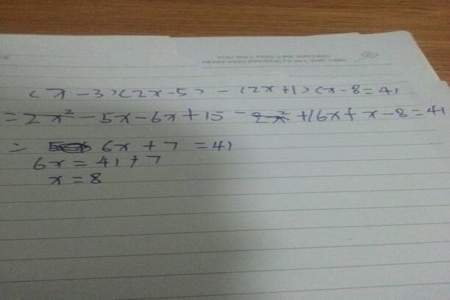 (x - 3)(2x - 5) - (2x + 1)(x - 8 = 41
= 2x² - 5x - 6x + 15 - 2x² + 16x + x - 8 = 41
= 6x + 7 = 41
6x = 41 + 7
x = 8